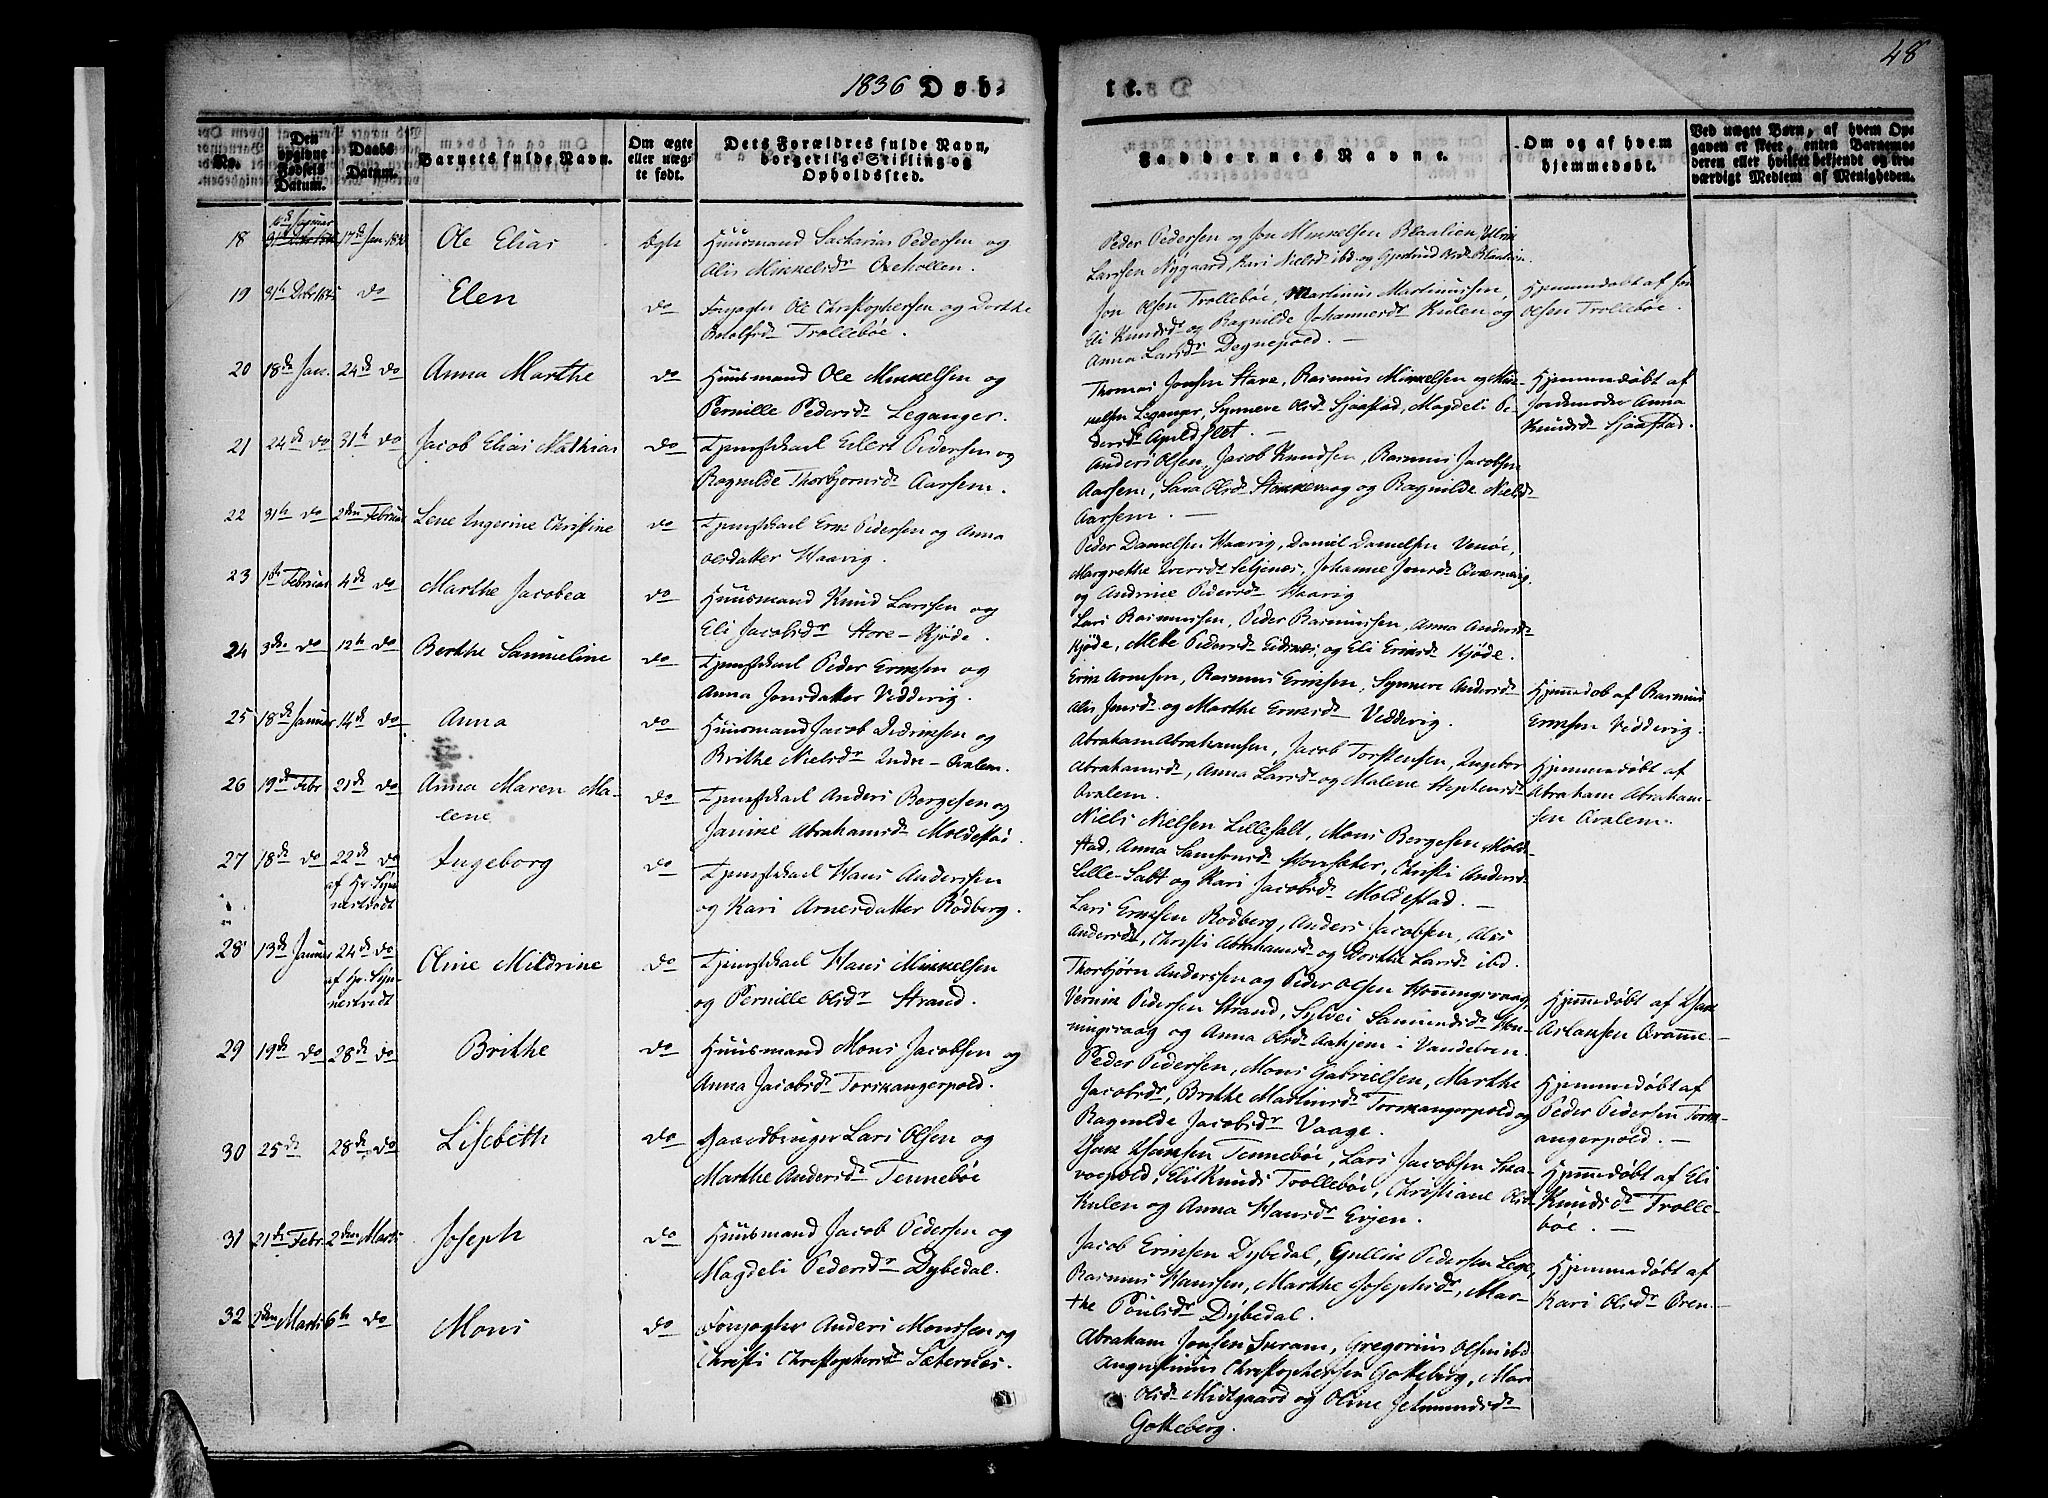 48
1836 Døb-
te.
No.
Den opgivne Fødsels Datum.
Daabs Datum.
Barnets fulde Navn.
Om ægte eller uægte født.
Dets Forældres fulde Navn, borgerlige Stilling og Opholdssted.
Faddernes Navne.
Om og af hvem hjemmedøbt.
Ved uægte Børn, af hvem Opgaven er skeet, enten Barnemoderen eller hvilket bekjendt og troværdigt Medlem af Menigheden.
18 Januar 17de Jan Ole Elias Ægte Huusmand Sacharias Pedersen og
Alis Mikkelsdr Oxehollen.
Peder Pedersen og Jon Mikkelsen Blaalien,
Larssen Nygaard, Kari Nielsdr ibd. og Gjertrud Olsdr Blaalien.
19 31te Decbr do Elen do Ole Christophersen og Dorthe
Trollebøe.
Jon Olsen Trollebøe, Martinus Martinussen,
Eli Knudsdr og Ragnilde Johannesdr Kulen og
Anna Larsdr Degnepold. —
Hjemmedøbt af Jon
Olsen Trollebøe.
20 18de Jan. 24de do Anna Marthe do Huusmand Ole Mikkelsen og
Pernille Pedersdr Leganger.
Thomas Jonsen Stave, Rasmus Mikkelsen og Mik-
kelsen Leganger, Synneve Olsdr Sjaastad, Magdeli Pe-
dersdr Apuldset. —
Hjemmedøbt af
Jordemoder Anna
Knudsdr Sjaastad.
21 24de do 31te do Jacob Elias Mathias do Eilert Pedersen og
Ragnilde Thorbjornsdr Aarsem.
Anders Olsen, Jacob Knudsen, Rasmus Jacobsen
Aarsem, Sara Olsdr Stokkevaag og Ragnilde Nielsdr
Aarsem. —
22 31te do 2den Februar Lene Ingerine Christine do Erik Pedersen og Anna
Olsdatter Haavig.
Peder Danielsen Haavig, Daniel Danielsen Venøe,
Margrethe Iversdr Seljenes, Johanne Jonsdr
og Andrine Pedersdr Haavig
23 1ste Februar 4de do Marthe Jacobea do Huusmand Knud Larssen og
Eli Jacobsdr Store-Kjøde.
Lars Rasmussen, Peder Rasmussen, Anna Andersdr
Kjøde, Mette Pedersdr Eidsnæs, og Eli Eriksdr Kjøde.
24 3die do 12te do Berthe Samueline do Peder Eriksen og
Anna Jonsdatter Vedvig.
Erik Arnesen, Rasmus Eriksen, Synneve Andersdr
Alis Jensdr og Marthe Eriksdr Vedvig.
Hjemmedøb af Rasmus
Eriksen Vedvig.
25 18de Januar 14de do Anna do Huusmand Jacob Didriksen og
Brithe Nielsdr Indre-Qvalem.
Abraham Abrahamsen, Jacob Torstensen, Ingebor
Abrahamsdr, Anna Larsdr og Malene Stephensdr
Qvalem.
Hjemmedøbt af
Abraham Abraham-
sen Qvalem.
26 19de Febr 21de do Anna Maren Ma-
lene do Anders Børgesen og
Janike Abrahamsdr Moldestad.
Niels Nielsen Lillesalt, Mons Børgesen Molde-
stad, Anna Samsonsdr Honsæter, Christi Andersdr
Lille-Salt og Kari Jacobsdr Moldestad. —
27 18de do 22de do
af Hr Syn-
nestvedt Ingeborg do Hans Anderssen
og Kari Arnesdatter Rødberg.
Lars Eriksen Rødberg, Anders Jacobsen, Alis
Andersdr, Christi Abrahamsdr og Dorthe Larsdr ibd.
28 13de Januar 24de do
af Hr. Syn-
nestvedt Oline Mildrine do Hans Mikkelsen
og Pernille Olsdr Strand.
Thorbjørn Anderssen og Peder Olsen Honningsvaag,
Pedersen Strand, Sylvei Samundsdr Hon-
ningsvaag og Anna Olsdr Aahjem i Vandelven.
Hjemmedøbt af
Aslaksen Qvamme. —
29 19de do 28de do Brithe do Huusmand Mons Jacobsen og
Anna Jacobsdr Torskangerpold.
Peder Pedersen, Mons Gabrielsen, Marthe
Jacobsdr, Brithe Martinsdr Torskangerpold og
Ragnilde Jacobsdr Vaage.
Hjemmedøbt af
Peder Pedersen Torsk-
angerpold. —
30 25de 28de do Lisebeth do Gaardbruger Lars Olsen og
Marthe Andersdr Tennebøe
Tennebøe, Lars Jacobsen Ska-
voepold, Eli Knuds Trollebøe, Christiane Olsdr
Kulen og Anna Hansdr Evjen.
Hjemmedøbt af Eli
Knudsdr Trolle-
bøe. —
31 21de Febr. 2den Marts Joseph do Huusmand Jacob Pedersen og
Magdeli Pedersdr Dybedal.
Jacob Eriksen Dybedal, Gullik Pedersen
Rasmus Hanssen, Marthe Josephsdr, Mar-
the Poulsdr Dybedal.
Hjemmedøbt af
Kari Olsdr
32 2den Marts 6te do Mons do Anders Monssen og
Christi Christophersdr Sæternæs.
Abraham Jonsen, Gregorius Olsen ibd
Augustinus Christophersen Gotteberg, Mari
Olsdr Midtgaard og Oline Jetmundsdr
Gotteberg.